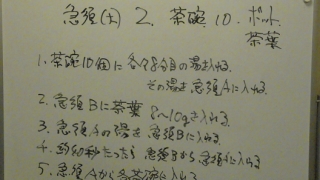 急須(大) 2. 茶碗 10. ポット.
茶葉
1. 茶碗10個に各々8分目の湯を入れる.
その湯を急須Aに入れる.
2. 急須Bに茶葉 8〜10g入れる.
3. 急須Aの湯を急須Bに入れる.
4. 約40秒たったら急須Bから急須Aに入れる
5. 急須Aから各茶碗に入れる